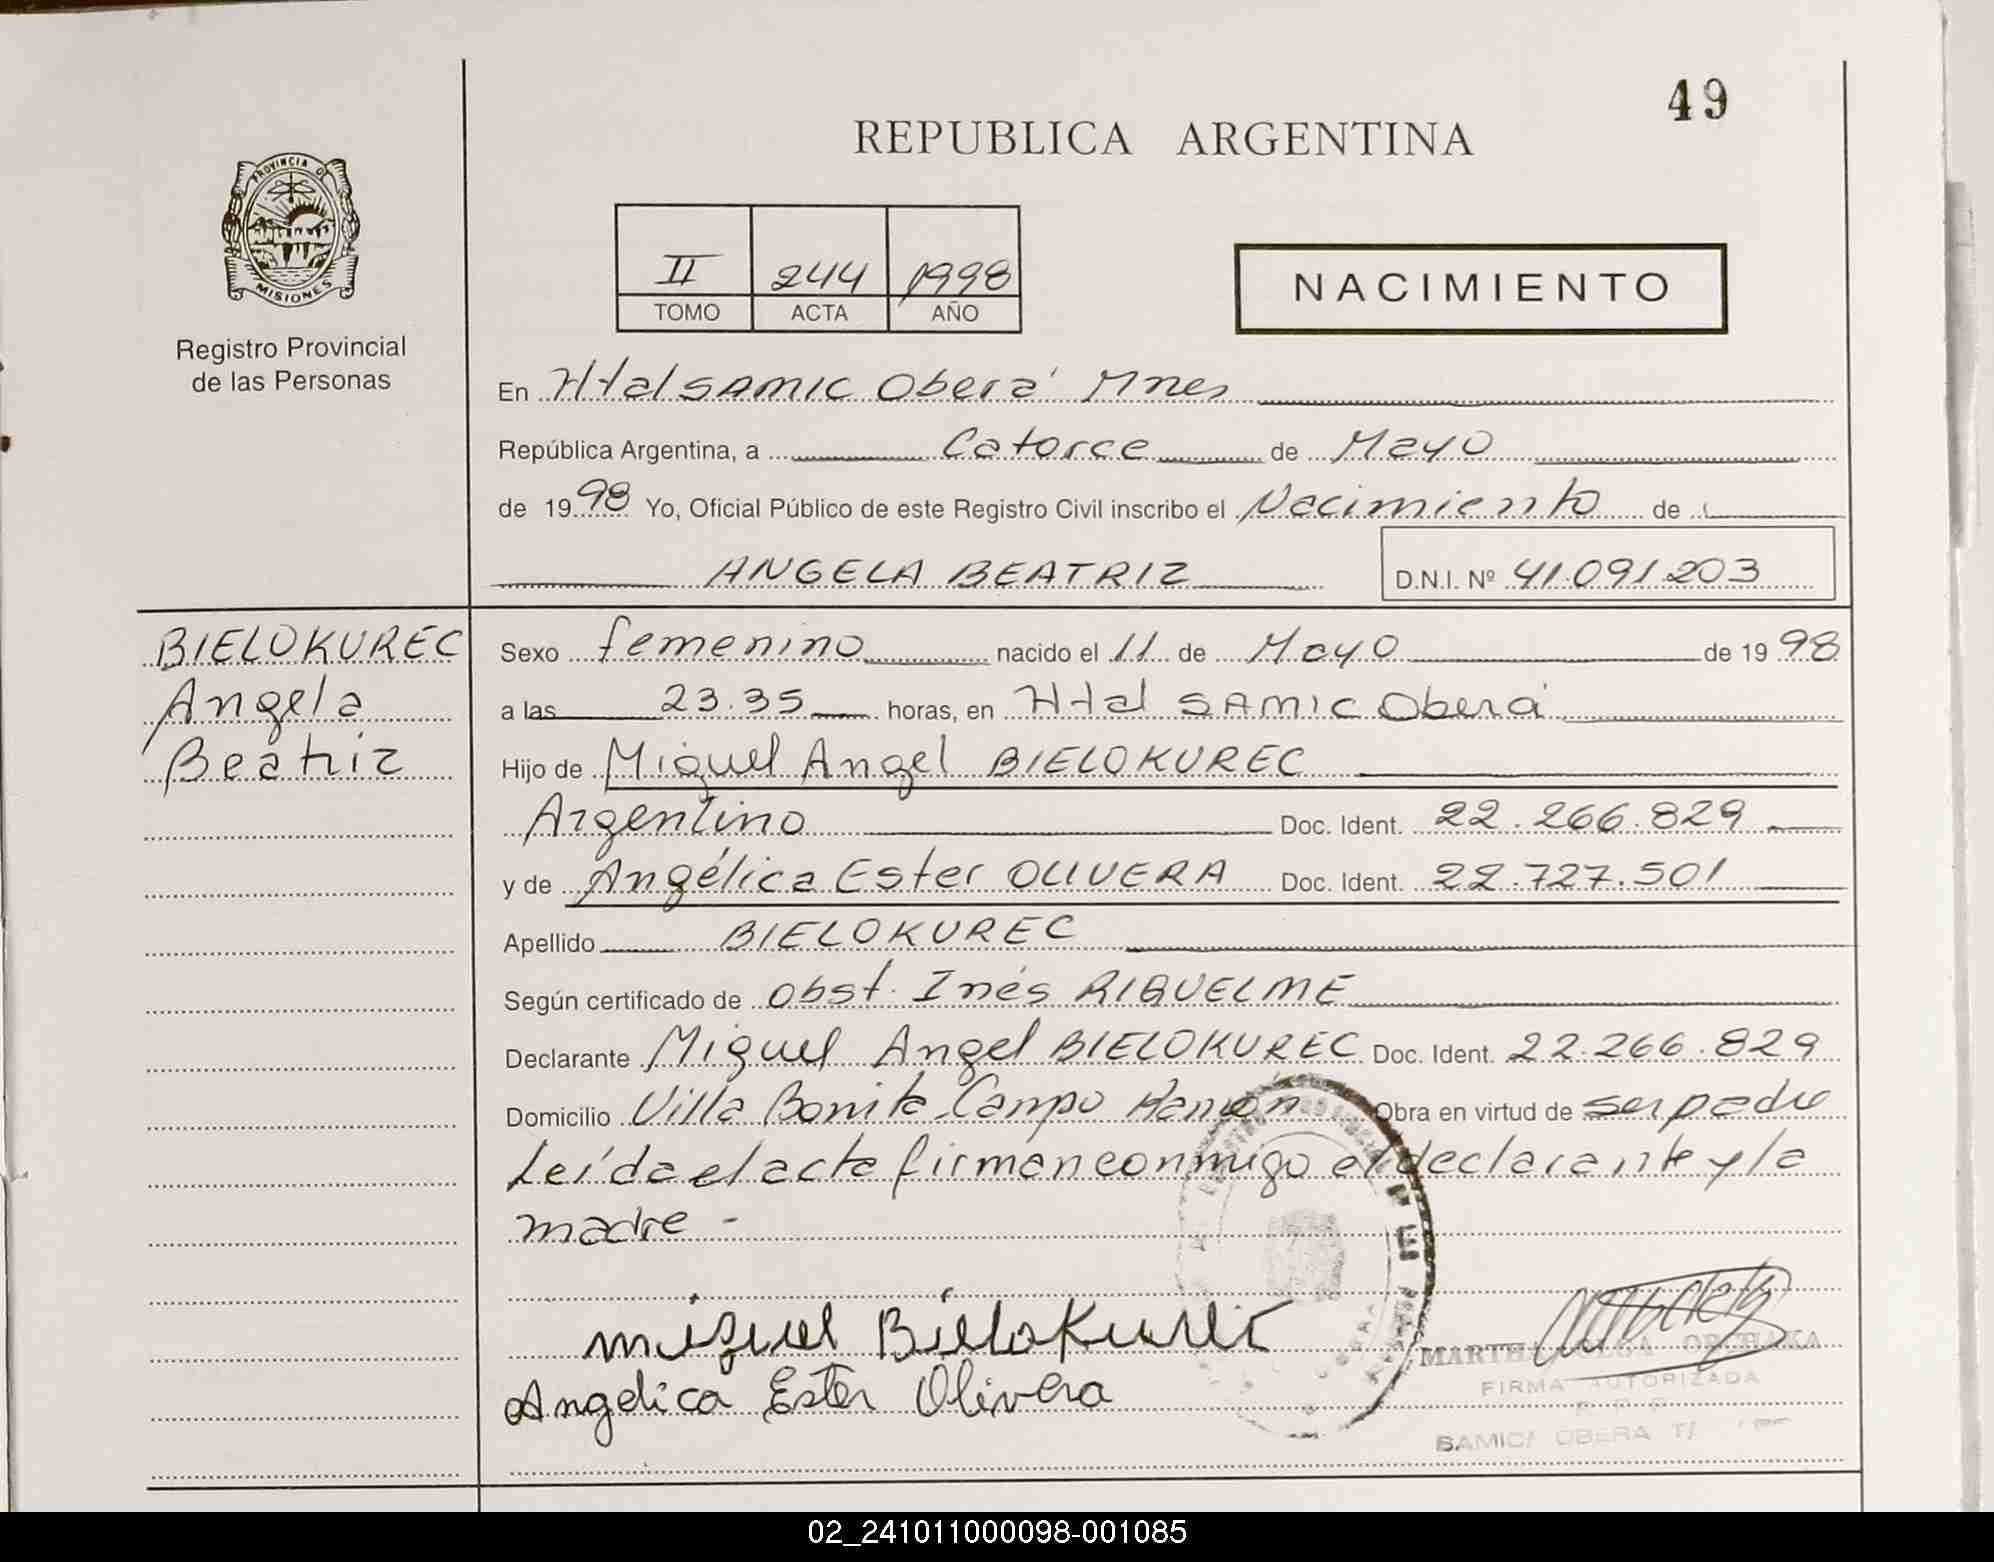 49
REPUBLICA ARGENTINA
PROVINCIA DE
MISIONES
Registro Provincial
de las Personas
II 244 1998
TOMO ACTA AÑO
NACIMIENTO
En Htal SAMIC Oberá Mnes
República Argentina, a Catorce de Mayo
de 1998 Yo, Oficial Público de este Registro Civil inscribo el Nacimiento de
ANGELA BEATRIZ D.N.I. Nº 41.091.203
BIELOKUREC
Angela
Beatriz
Sexo femenino nacido el 11 de Mayo de 1998
a las 23.35 horas, en Htal SAMIC Oberá
Hijo de Miguel Angel BIELOKUREC
Argentino Doc. Ident. 22.266.829
y de Angélica Ester OLIVERA Doc. Ident. 22.727.501
Apellido BIELOKUREC
Según certificado de Obst. Inés RIQUELME
Declarante Miguel Angel BIELOKUREC Doc. Ident. 22.266.829
Domicilio Villa Bonita Campo Ramón Obra en virtud de ser padre
Leída el acta firman conmigo el declarante y la
madre -
Miguel Bielokurec
Angelica Ester Olivera
MARTHA OLGA
FIRMA AUTORIZADA
R P P
SAMIC/ OBERA T/
02_241011000098-001085